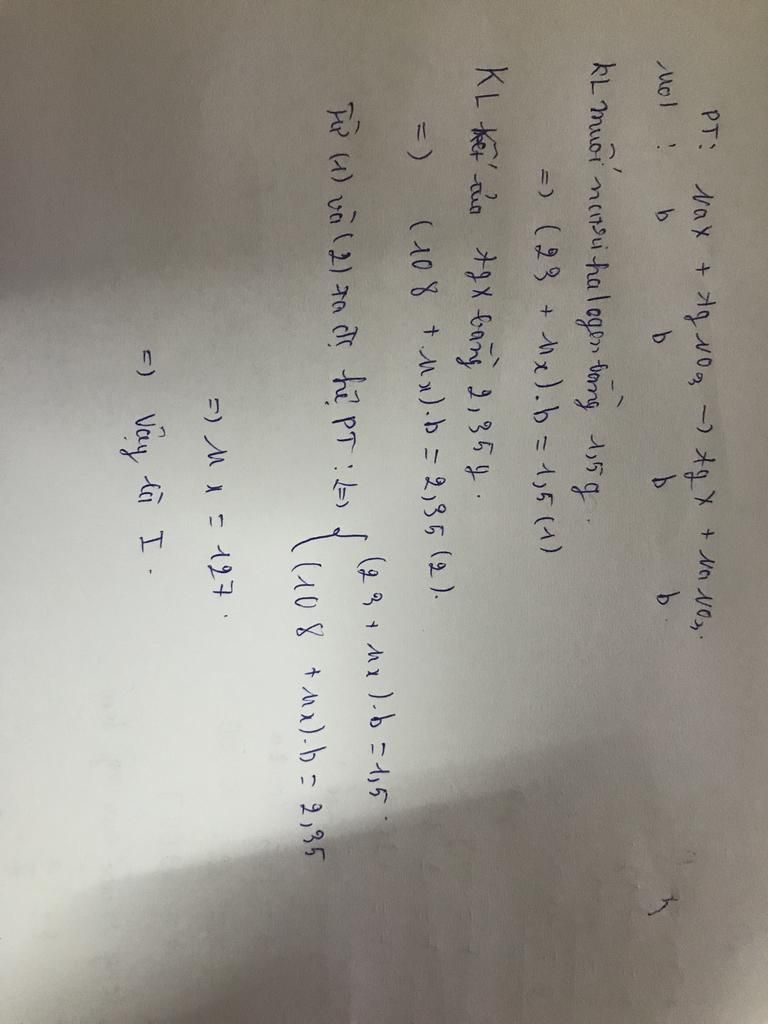 PT: NaX + AgNO3 → AgX + NaNO3.
Mol : b b b b.
KL muối natri halogen bằng 1,5g.
=> (23 + Mx).b = 1,5 (1)
KL kết tủa AgX bằng 2,35g.
=> (108 + Mx).b = 2,35 (2).
Từ (1) và (2) ta đc hệ PT: <=> { (23 + Mx).b = 1,5.
(108 + Mx).b = 2,35
=> Mx = 127.
=> Vậy là I.